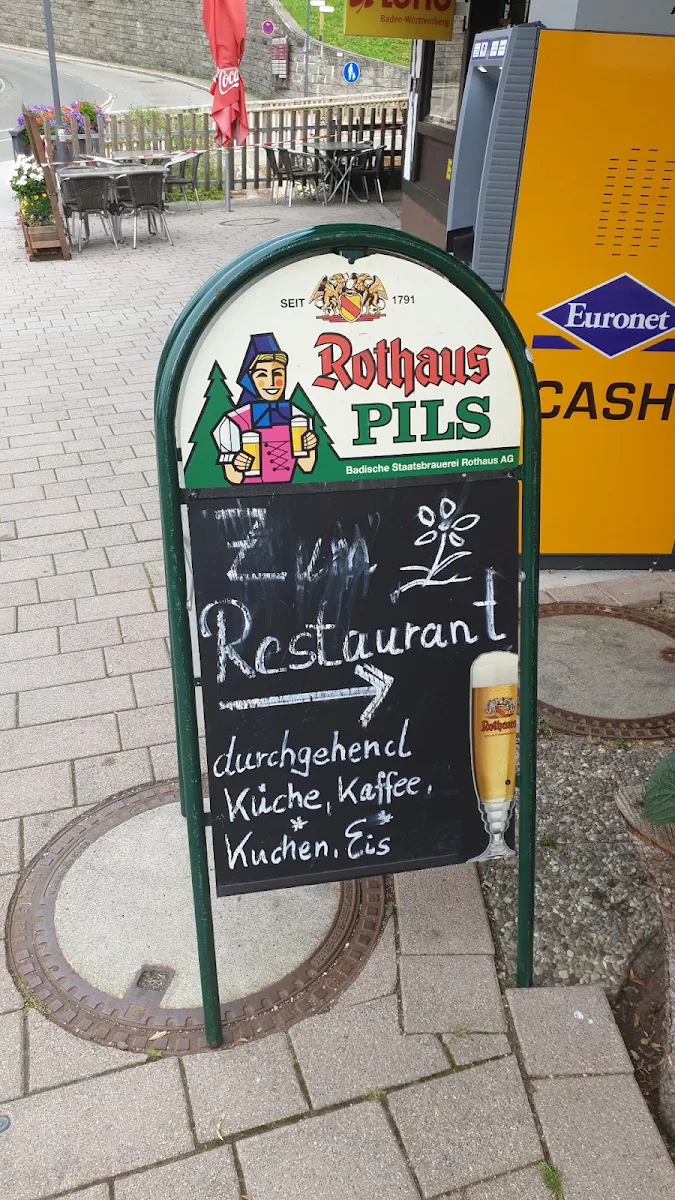 LOTTO
Baden-Württemberg
Coca
SEIT 1791
Rothaus
PILS
Badische Staatsbrauerei Rothaus AG
Zum
Restaurant
durchgehend
Küche, Kaffee,
Kuchen, Eis
Rothaus
Euronet
CASH